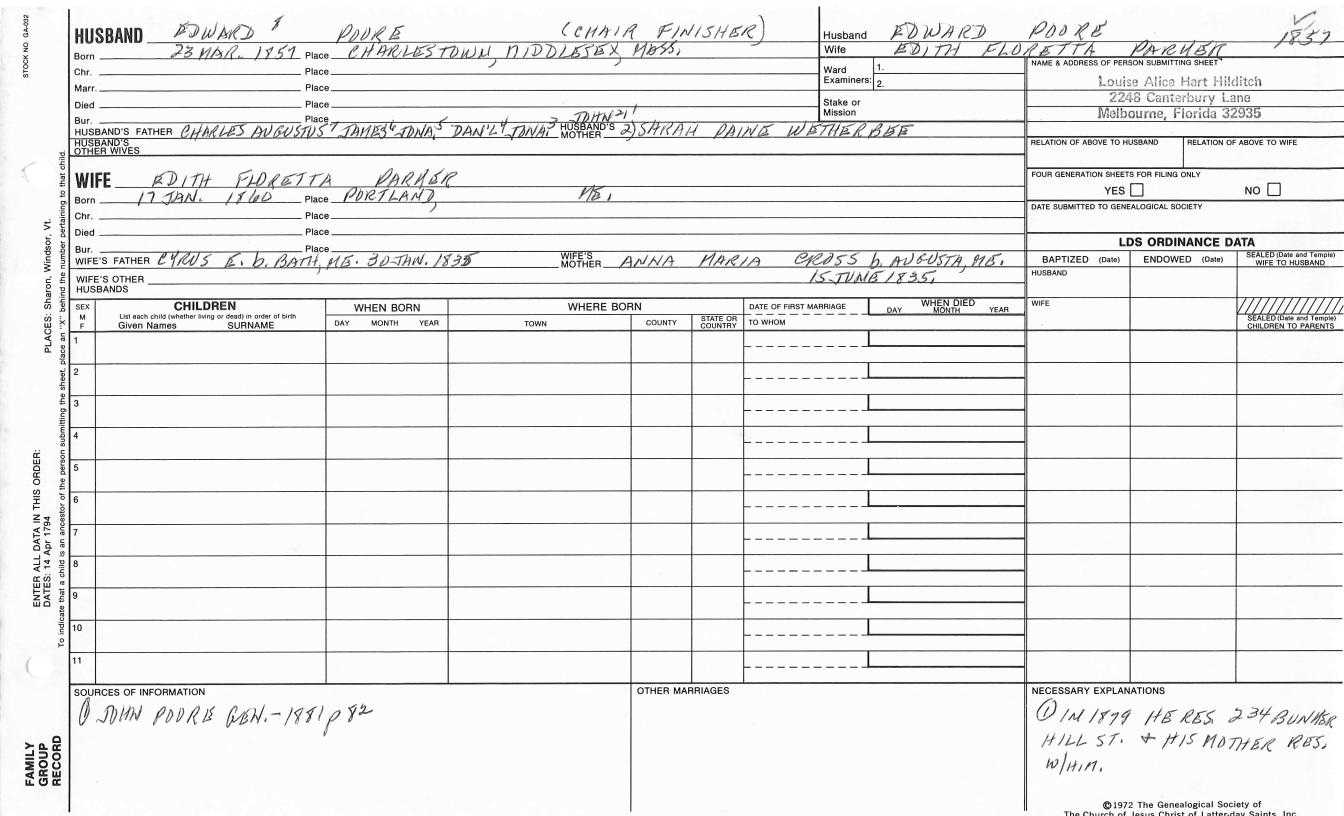 STOCK NO. GA-032
HUSBAND EDWARD 8 POORE (CHAIR FINISHER)
Born 23 MAR. 1857 Place CHARLESTOWN, MIDDLESEX, MASS.
Chr. Place
Marr. Place
Died Place
Bur. Place
HUSBAND'S FATHER CHARLES AUGUSTUS7 JAMES6 JONA5 DAN'L4 JONA3 JOHN21 HUSBAND'S MOTHER 2) SARAH PAINE WETHERBEE
HUSBAND'S OTHER WIVES
Husband EDWARD POORE
Wife EDITH FLORETTA PARKER
✓ 1857
Ward Examiners: 1. 2.
Stake or Mission
NAME & ADDRESS OF PERSON SUBMITTING SHEET
Louise Alice Hart Hilditch
2248 Canterbury Lane
Melbourne, Florida 32935
RELATION OF ABOVE TO HUSBAND RELATION OF ABOVE TO WIFE
FOUR GENERATION SHEETS FOR FILING ONLY
YES NO
DATE SUBMITTED TO GENEALOGICAL SOCIETY
WIFE EDITH FLORETTA PARKER
Born 17 JAN. 1860 Place PORTLAND, ME.
Chr. Place
Died Place
Bur. Place
WIFE'S FATHER CYRUS E. b. BATH, ME. 30 JAN. 1835 WIFE'S MOTHER ANNA MARIA CROSS b. AUGUSTA, ME.
15 JUNE 1835.
WIFE'S OTHER HUSBANDS
LDS ORDINANCE DATA
BAPTIZED (Date) ENDOWED (Date) SEALED (Date and Temple) WIFE TO HUSBAND
HUSBAND
WIFE
SEALED (Date and Temple) CHILDREN TO PARENTS
SEX M F
CHILDREN
List each child (whether living or dead) in order of birth
Given Names SURNAME
WHEN BORN
DAY MONTH YEAR
WHERE BORN
TOWN COUNTY STATE OR COUNTRY
DATE OF FIRST MARRIAGE
TO WHOM
WHEN DIED
DAY MONTH YEAR
1
2
3
4
5
6
7
8
9
10
11
SOURCES OF INFORMATION
① JOHN POORE GEN.-1881 p 82
OTHER MARRIAGES
NECESSARY EXPLANATIONS
① IN 1879 HE RES. 234 BUNKER
HILL ST. + HIS MOTHER RES.
W/HIM.
©1972 The Genealogical Society of
The Church of Jesus Christ of Latter-day Saints, Inc.
FAMILY GROUP RECORD
ENTER ALL DATA IN THIS ORDER:
DATES: 14 Apr 1794 PLACES: Sharon, Windsor, Vt.
To indicate that a child is an ancestor of the person submitting the sheet, place an "X" behind the number pertaining to that child.